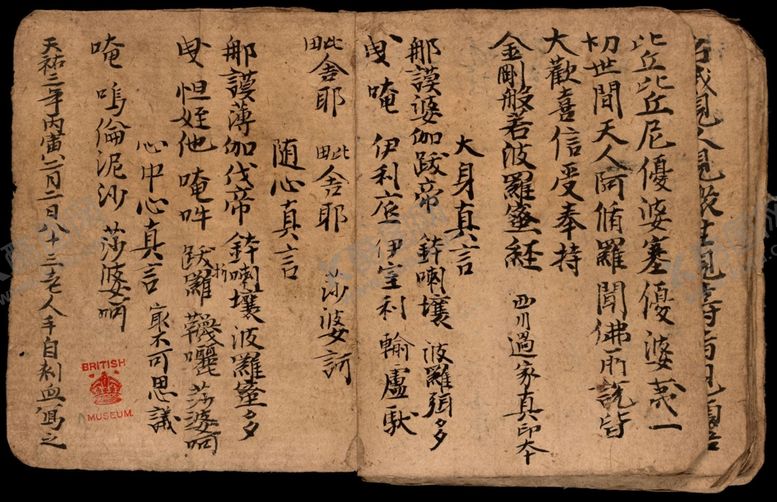 比丘比丘尼優婆塞優婆夷一
切世間天人阿脩羅聞佛所說皆
大歡喜信受奉持
金剛般若波羅蜜經 西川過家真印本
大身真言
那謨婆伽跋帝 鉢喇壤 波羅弭多
曳 唵 伊利底 伊室利 輸盧馱
毗舍耶 毗舍耶 莎婆訶
随心真言
那謨薄伽伐帝 鉢喇壤波羅蜜多
曳 怛姪他 唵吽 跋折羅 莎婆訶
心中心真言 㝡不可思議
唵 嗚倫泥沙 莎婆訶
天祐三年丙寅二月二日八十三老人手自刺血寫之
BRITISH
MUSEUM